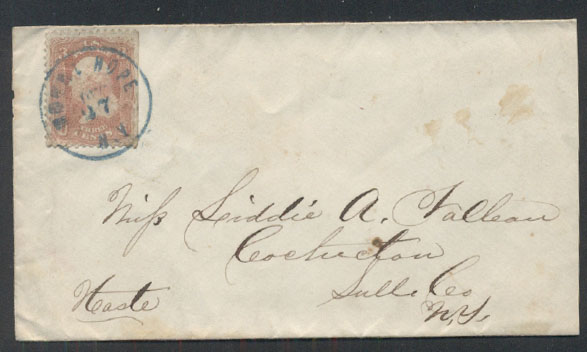 GOOD HOPE
17
CENTS
Miss Liddie A.
Cochecton
Sull. Co
N.Y.
Haste